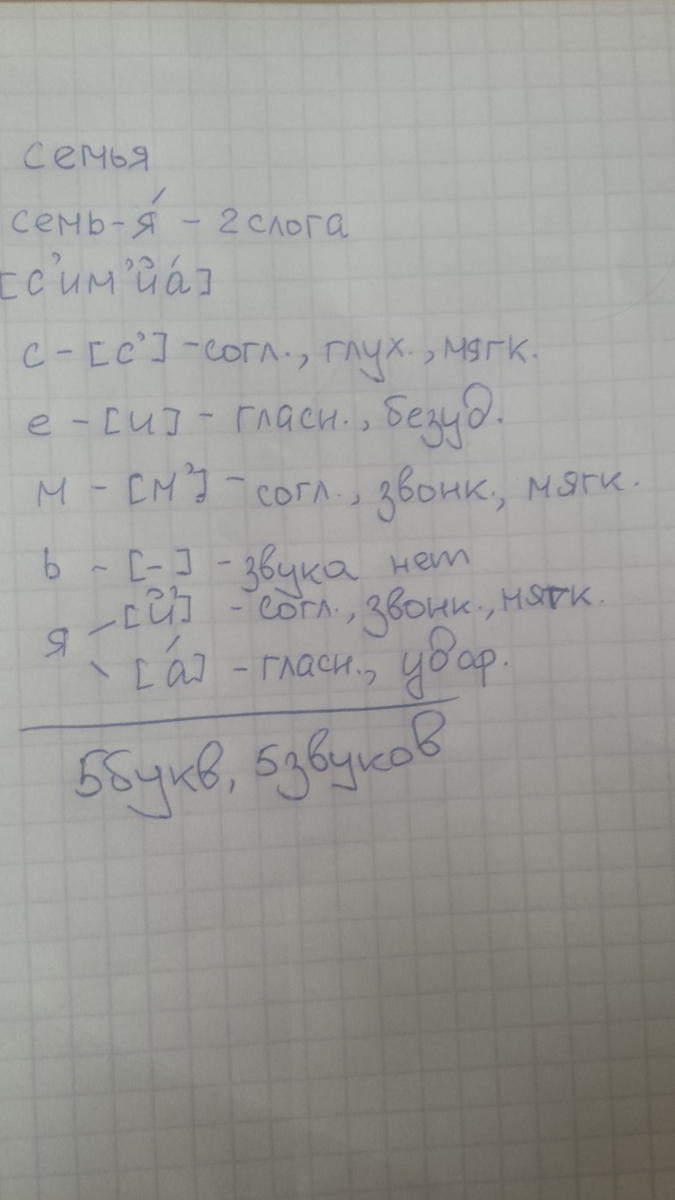 семья
семь-я́ - 2 слога
[с'им'й'а́]
с - [с'] - согл., глух., мягк.
е - [и] - гласн., безуд.
м - [м'] - согл., звонк., мягк.
ь - [-] - звука нет
[й'] - согл., звонк., мягк.
я
[а́] - гласн., удар.
5 букв, 5 звуков